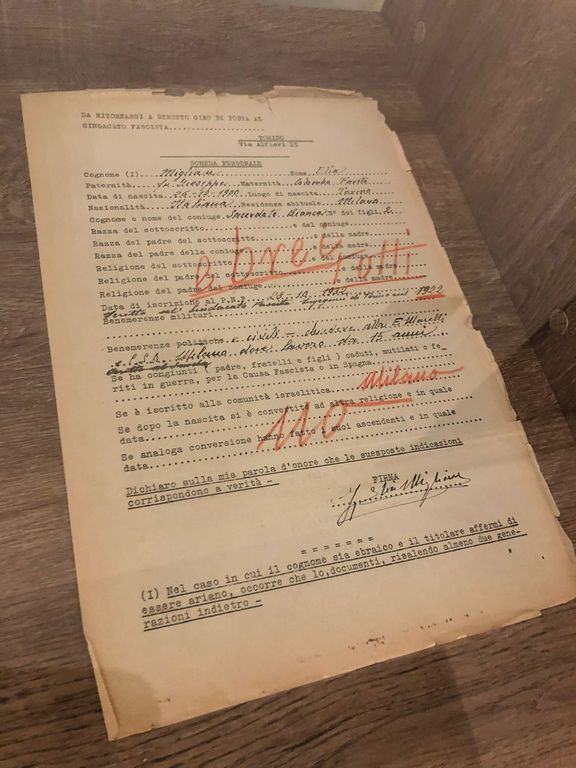 DA RITORNARSI A STRETTO GIRO DI POSTA AL
SINDACATO FASCISTA........................
TORINO
Via Alfieri 15
SCHEDA PERSONALE
Cognome (I) Migliau Nome Elia
Paternità fu Giuseppe Maternità
Data di nascita 26-12-1900 Luogo di nascita Torino
Nazionalità Italiana Residenza abituale Milano
Cognome e nome del coniuge Sacerdote Bianca N° dei figli 2
Razza del sottoscritto e del coniuge
Razza del padre del sottoscritto e della madre
Razza del padre della coniuge e della madre
Religione del sottoscritto e del coniuge
Religione del padre del sottoscritto e della madre
Religione del padre del coniuge e della madre
ebrei tutti
Data di iscrizione al P.N.F. 29.10.1932
1922
Benemerenze militari
Benemerenze politiche e civili
Milano dove lavoro da 15 anni
Se ha congiunti ( padre, fratelli e figli ) caduti, mutilati o fe-
riti in guerra, per la Causa Fascista o in Spagna
Se è iscritto alla comunità israelitica Milano
Se dopo la nascita si è convertito ad altra religione e in quale
data
no
Se analoga conversione hanno fatto i suoi ascendenti e in quale
data
Dichiaro sulla mia parola d'onore che le suesposte indicazioni
corrispondono a verità -
FIRMA
Elia Migliau
= = = = = = =
(I) Nel caso in cui il cognome sia ebraico e il titolare affermi di
essere ariano, occorre che lo documenti, risalendo almeno due gene-
razioni indietro -